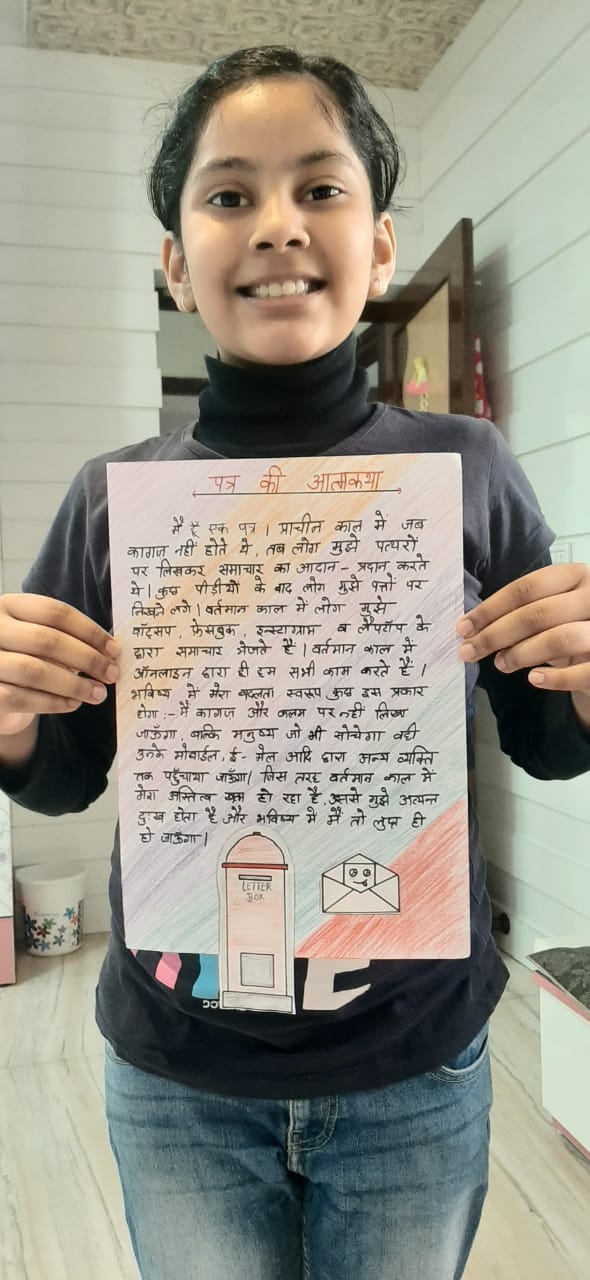 पत्र की आत्मकथा
मैं हूँ एक पत्र । प्राचीन काल में जब
कागज नहीं होते थे, तब लोग मुझे पत्थरों
पर लिखकर समाचार का आदान - प्रदान करते
थे । कुछ पीड़ीयों के बाद लोग मुझे पत्तों पर
लिखने लगे । वर्तमान काल में लोग मुझे
वॉट्सप, फ़ेसबुक, इन्स्टाग्राम व लैपटॉप के
द्वारा समाचार भेजते हैं । वर्तमान काल में
ऑनलाइन द्वारा ही हम सभी काम करते हैं ।
भविष्य में मेरा बदलता स्वरूप कुछ इस प्रकार
होगा :- मैं कागज और कलम पर नहीं लिखा
जाऊँगा, बल्कि मनुष्य जो भी सोचेगा वही
उनके मोबाईल, ई - मेल आदि द्वारा अन्य व्यक्ति
तक पहुँचाया जाऊँगा। जिस तरह वर्तमान काल में
मेरा अस्तित्व खत्म हो रहा है, उससे मुझे अत्यन्त
दुःख होता है और भविष्य में मैं तो लुप्त ही
हो जाऊँगा ।
LETTER
BOX